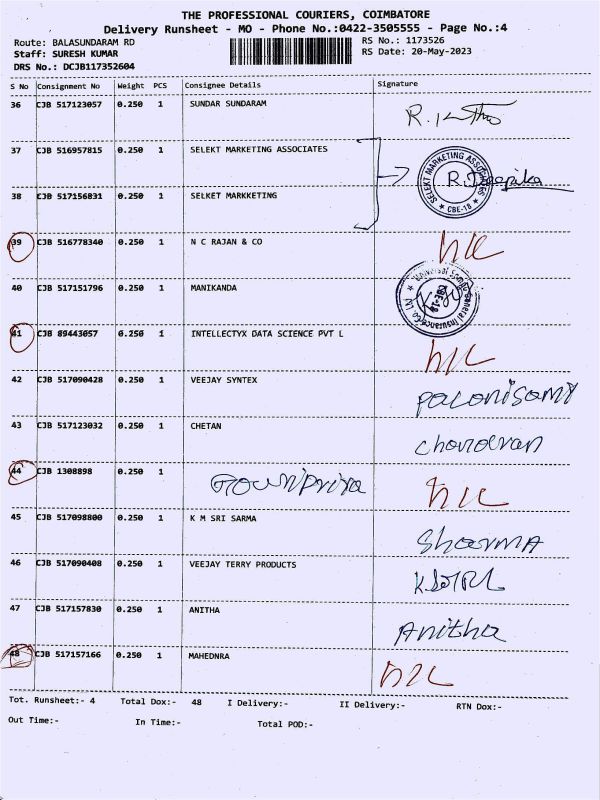 THE PROFESSIONAL COURIERS, COIMBATORE
Delivery Runsheet - MO - Phone No.:0422-3505555 - Page No.:4
Route: BALASUNDARAM RD RS No.: 1173526
Staff: SURESH KUMAR RS Date: 20-May-2023
DRS No.: DCJB117352604
S No Consignment No Weight PCS Consignee Details Signature
36 CJB 517123057 0.250 1 SUNDAR SUNDARAM
37 CJB 516957815 0.250 1 SELEKT MARKETING ASSOCIATES
SELEKT MARKETING ASSOCIATES
R. Deepika
★ CBE-18 ★
38 CJB 517156831 0.250 1 SELKET MARKKETING
39 CJB 516778340 0.250 1 N C RAJAN & CO
40 CJB 517151796 0.250 1 MANIKANDA
Universal Sompo General Insurance Co. Ltd
CBE-18
41 CJB 89443057 0.250 1 INTELLECTYX DATA SCIENCE PVT L
42 CJB 517090428 0.250 1 VEEJAY SYNTEX
43 CJB 517123032 0.250 1 CHETAN
44 CJB 1308898 0.250 1 Gowripriya
45 CJB 517098800 0.250 1 K M SRI SARMA Sharma
46 CJB 517090408 0.250 1 VEEJAY TERRY PRODUCTS
47 CJB 517157830 0.250 1 ANITHA Anitha
48 CJB 517157166 0.250 1 MAHEDNRA
Tot. Runsheet:- 4 Total Dox:- 48 I Delivery:- II Delivery:- RTN Dox:-
Out Time:- In Time:- Total POD:-